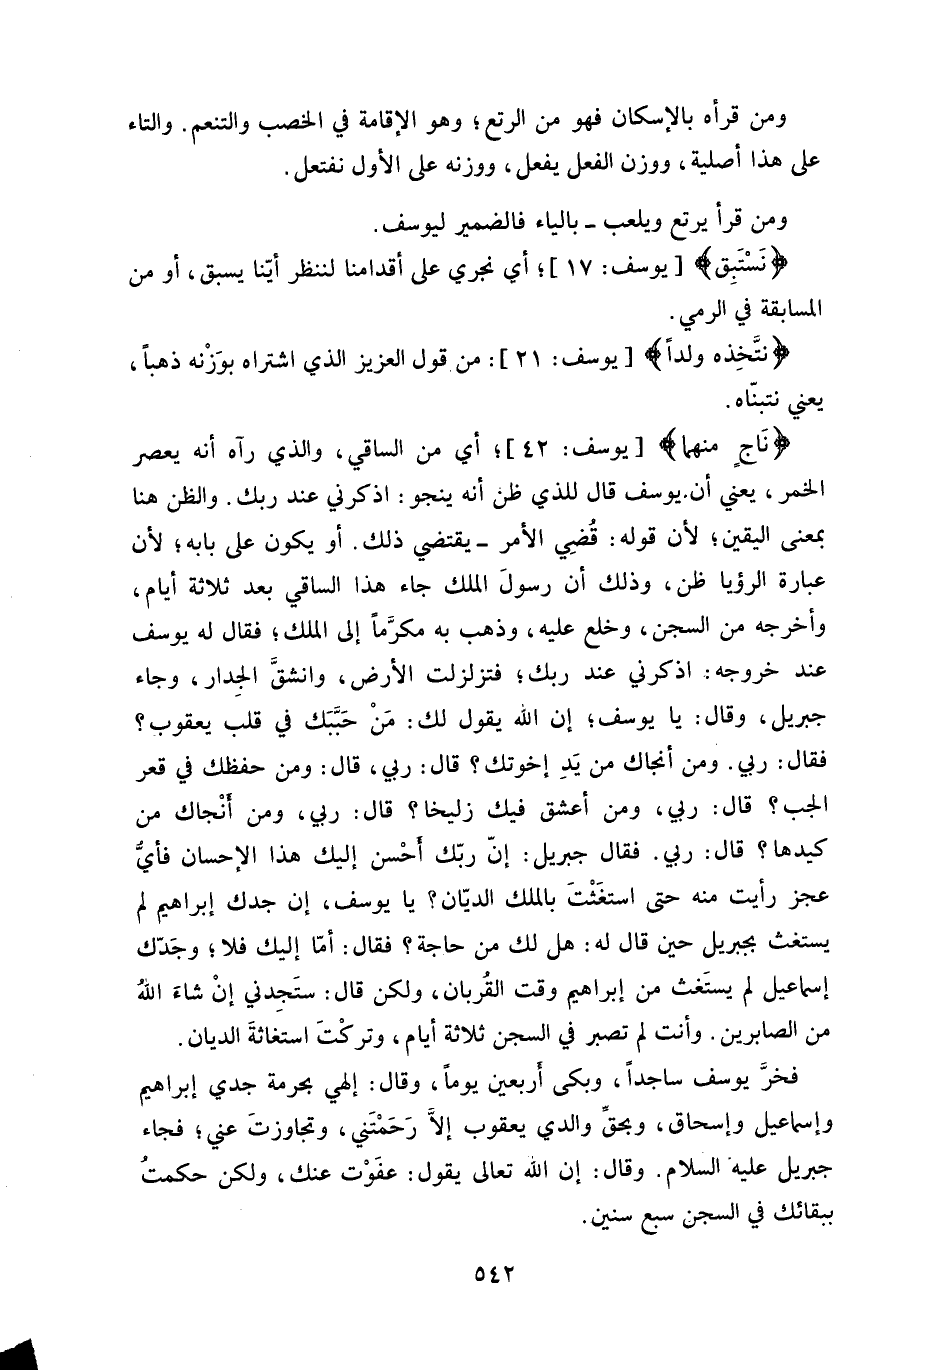 ومن قرأه بالإسكان فهو من الرتع؛ وهو الإقامة في الخصب والتنعم. والتاء
على هذا أصلية، ووزن الفعل يفعل، ووزنه على الأول نفتعل.
ومن قرأ يرتع ويلعب ـ بالياء فالضمير ليوسف.
﴿نَسْتَبِق﴾ [يوسف: ١٧]؛ أي نجري على أقدامنا لننظر أيّنا يسبق، أو من
المسابقة في الرمي.
﴿نتَّخِذه ولداً﴾ [يوسف: ٢١]: من قول العزيز الذي اشتراه بوَزْنه ذهباً،
يعني نتبنّاه.
﴿نَاجٍ منهما﴾ [يوسف: ٤٢]؛ أي من الساقي، والذي رآه أنه يعصر
الخمر، يعني أن يوسف قال للذي ظن أنه ينجو: اذكرني عند ربك. والظن هنا
بمعنى اليقين؛ لأن قوله: قُضِي الأمر ـ يقتضي ذلك. أو يكون على بابه؛ لأن
عبارة الرؤيا ظن، وذلك أن رسولَ الملك جاء هذا الساقي بعد ثلاثة أيام،
وأخرجه من السجن، وخلع عليه، وذهب به مكرَّماً إلى الملك؛ فقال له يوسف
عند خروجه: اذكرني عند ربك؛ فتزلزلت الأرض، وانشقَّ الجدار، وجاء
جبريل، وقال: يا يوسف؛ إن الله يقول لك: مَنْ حَبَّبَك في قلب يعقوب؟
فقال: ربي. ومن أنجاك من يَدِ إخوتك؟ قال: ربي، قال: ومن حفظك في قعر
الجب؟ قال: ربي، ومن أعشق فيك زليخا؟ قال: ربي، ومن أَنْجاك من
كيدها؟ قال: ربي. فقال جبريل: إنّ ربّك أَحْسن إليك هذا الإحسان فأيُّ
عجز رأيت منه حتى استغَثْتَ بالملك الديّان؟ يا يوسف، إن جدك إبراهيم لم
يستغث بجبريل حين قال له: هل لك من حاجة؟ فقال: أمّا إليك فلا؛ وجَدّك
إسماعيل لم يستَغث من إبراهيم وقت القُربان، ولكن قال: ستَجِدني إنْ شاءَ اللهُ
من الصابرين. وأنت لم تصبر في السجن ثلاثة أيام، وتركْتَ استغاثةَ الديان.
فخرَّ يوسف ساجداً، وبكى أربعين يوماً، وقال: إلهي بحرمة جدي إبراهيم
وإسماعيل وإسحاق، وبحقِّ والدي يعقوب إلاَّ رَحَمْتَني، وتجاوزتَ عني؛ فجاء
جبريل عليه السلام. وقال: إن الله تعالى يقول: عفَوْت عنك، ولكن حكمتُ
ببقائك في السجن سبع سنين.
٥٤٢